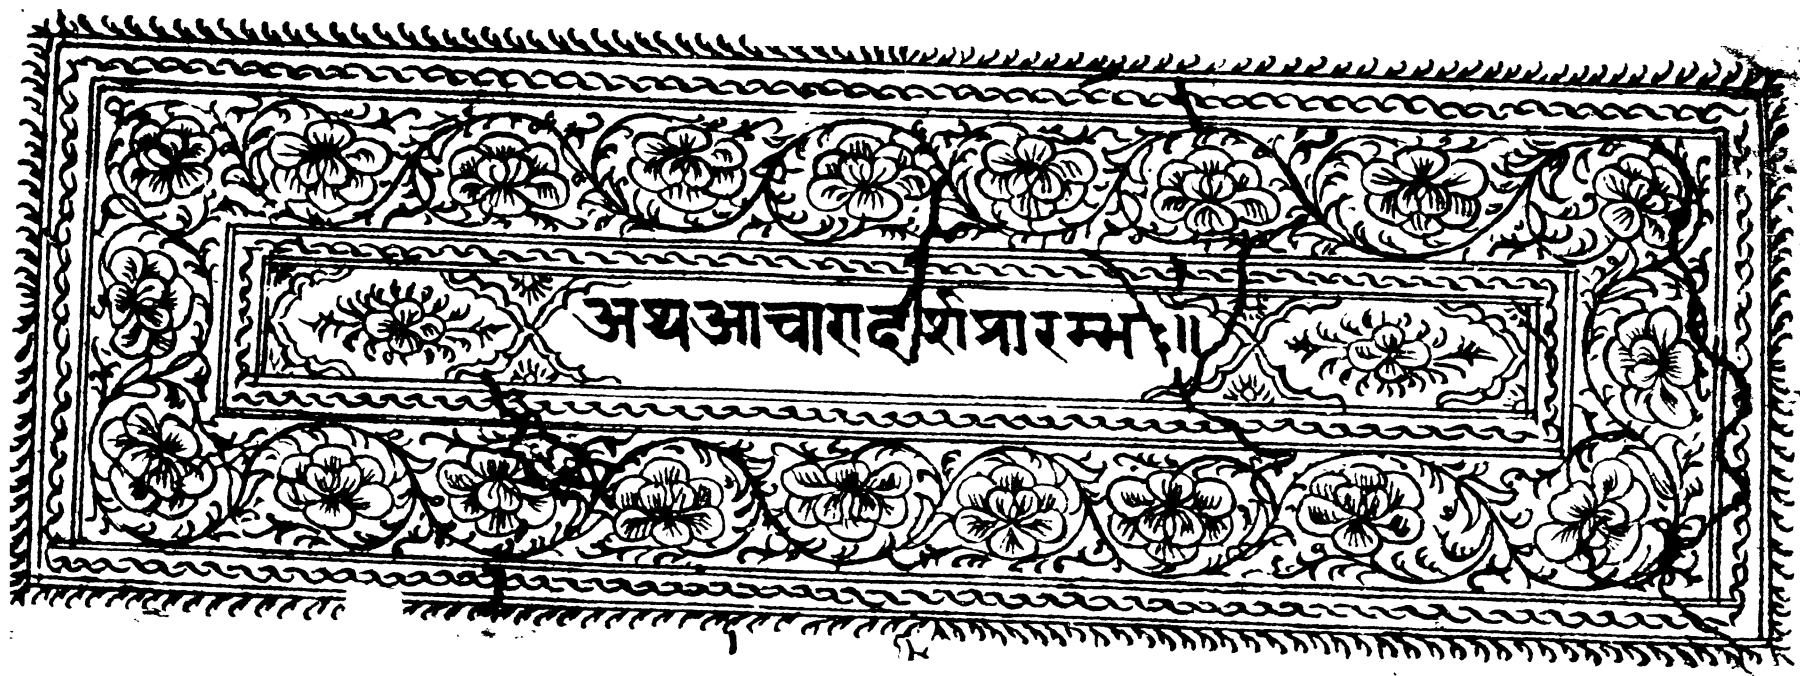 अथ आचारादर्शप्रारम्भः॥